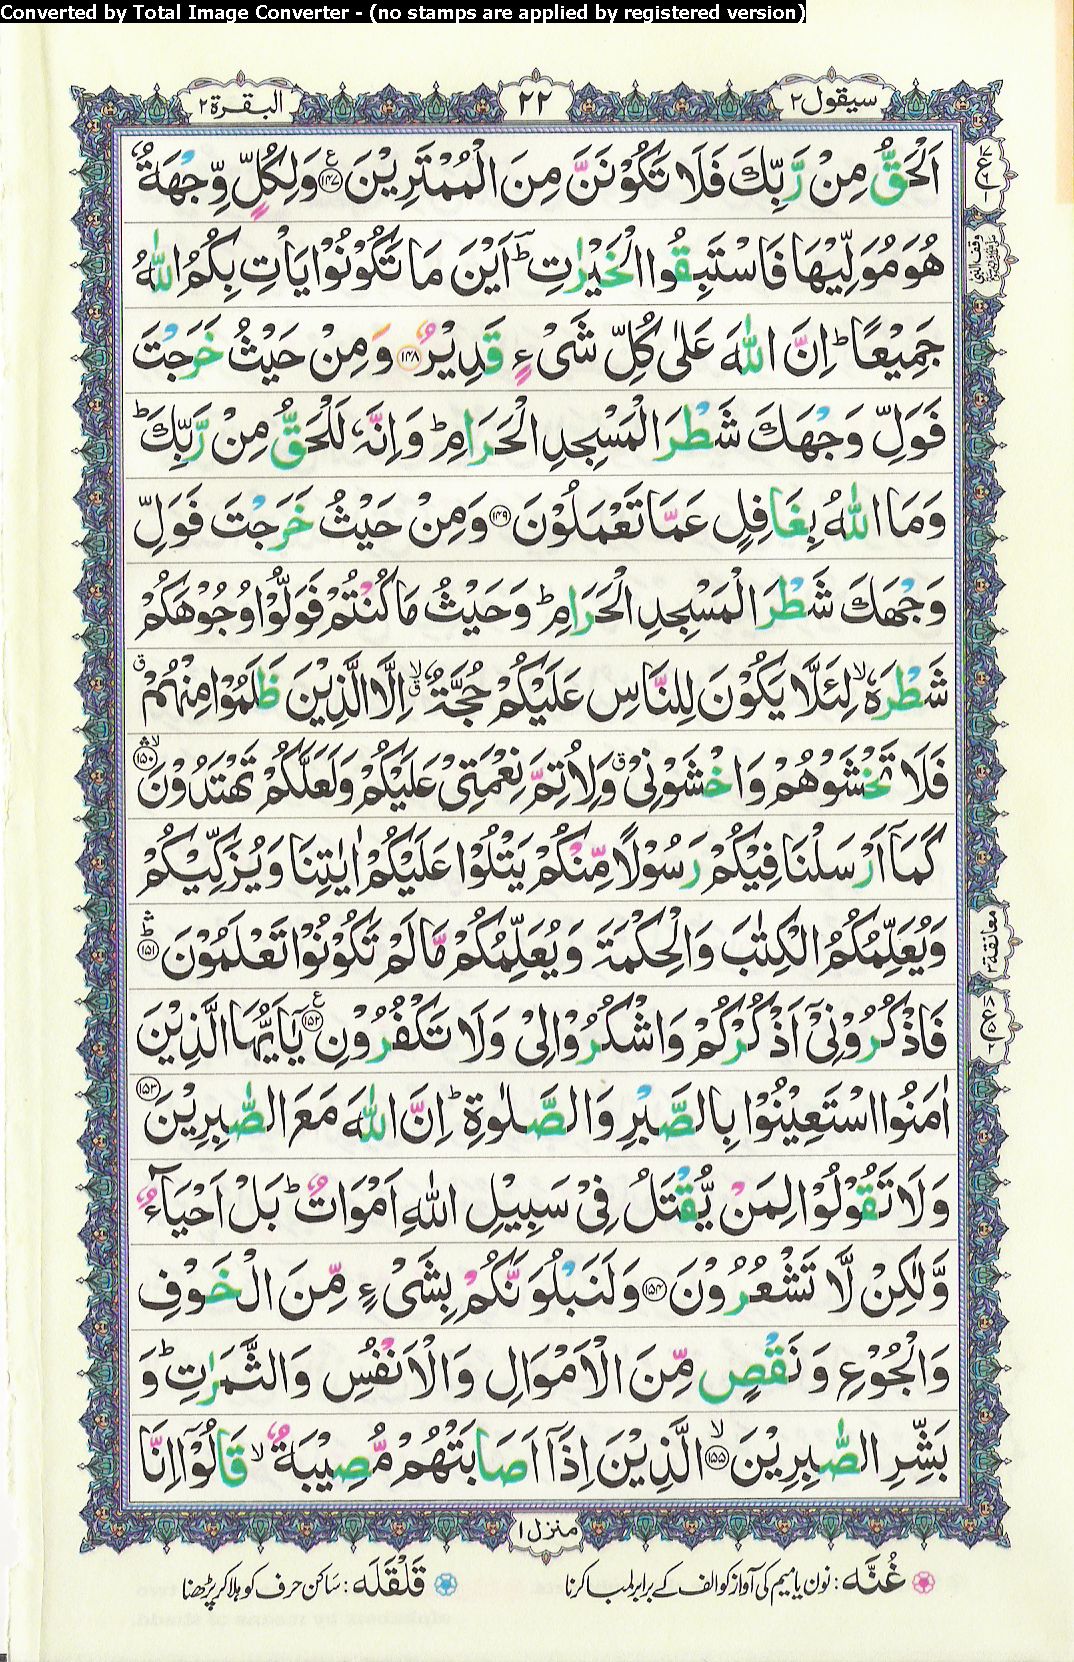 Converted by Total Image Converter - (no stamps are applied by registered version)
سيقول ٢
٢٢
البقرة ٢
اَلْحَقُّ مِنْ رَّبِّكَ فَلَا تَكُوْنَنَّ مِنَ الْمُمْتَرِيْنَ ﴿۱۴۷﴾ وَلِكُلٍّ وِّجْهَةٌ
هُوَ مُوَلِّيْهَا فَاسْتَبِقُوا الْخَيْرٰتِ ؕ اَيْنَ مَا تَكُوْنُوْا يَاْتِ بِكُمُ اللّٰهُ
جَمِيْعًا ؕ اِنَّ اللّٰهَ عَلٰى كُلِّ شَىْءٍ قَدِيْرٌ ﴿۱۴۸﴾ وَمِنْ حَيْثُ خَرَجْتَ
فَوَلِّ وَجْهَكَ شَطْرَ الْمَسْجِدِ الْحَرَامِ ؕ وَاِنَّهٗ لَلْحَقُّ مِنْ رَّبِّكَ ؕ
وَمَا اللّٰهُ بِغَافِلٍ عَمَّا تَعْمَلُوْنَ ﴿۱۴۹﴾ وَمِنْ حَيْثُ خَرَجْتَ فَوَلِّ
وَجْهَكَ شَطْرَ الْمَسْجِدِ الْحَرَامِ ؕ وَحَيْثُ مَا كُنْتُمْ فَوَلُّوْا وُجُوْهَكُمْ
شَطْرَهٗ ۙ لِئَلَّا يَكُوْنَ لِلنَّاسِ عَلَيْكُمْ حُجَّةٌ ۙ اِلَّا الَّذِيْنَ ظَلَمُوْا مِنْهُمْ
فَلَا تَخْشَوْهُمْ وَاخْشَوْنِىْ وَلِاُتِمَّ نِعْمَتِىْ عَلَيْكُمْ وَلَعَلَّكُمْ تَهْتَدُوْنَ ﴿۱۵۰﴾
كَمَآ اَرْسَلْنَا فِيْكُمْ رَسُوْلًا مِّنْكُمْ يَتْلُوْا عَلَيْكُمْ اٰيٰتِنَا وَيُزَكِّيْكُمْ
وَيُعَلِّمُكُمُ الْكِتٰبَ وَالْحِكْمَةَ وَيُعَلِّمُكُمْ مَّا لَمْ تَكُوْنُوْا تَعْلَمُوْنَ ﴿۱۵۱﴾
فَاذْكُرُوْنِىْٓ اَذْكُرْكُمْ وَاشْكُرُوْا لِىْ وَلَا تَكْفُرُوْنِ ﴿۱۵۲﴾ يٰٓاَيُّهَا الَّذِيْنَ
اٰمَنُوا اسْتَعِيْنُوْا بِالصَّبْرِ وَالصَّلٰوةِ ؕ اِنَّ اللّٰهَ مَعَ الصّٰبِرِيْنَ ﴿۱۵۳﴾
وَلَا تَقُوْلُوْا لِمَنْ يُّقْتَلُ فِىْ سَبِيْلِ اللّٰهِ اَمْوَاتٌ ؕ بَلْ اَحْيَآءٌ
وَّلٰكِنْ لَّا تَشْعُرُوْنَ ﴿۱۵۴﴾ وَلَنَبْلُوَنَّكُمْ بِشَىْءٍ مِّنَ الْخَوْفِ
وَالْجُوْعِ وَنَقْصٍ مِّنَ الْاَمْوَالِ وَالْاَنْفُسِ وَالثَّمَرٰتِ ؕ وَ
بَشِّرِ الصّٰبِرِيْنَ ۙ﴿۱۵۵﴾ الَّذِيْنَ اِذَآ اَصَابَتْهُمْ مُّصِيْبَةٌ ۙ قَالُوْٓا اِنَّا
معانقة ٢
منزل ١
غُنَّه : نون یا میم کی آواز کو الف کے برابر لمبا کرنا
قَلْقَلَه : ساکن حرف کو ہلا کر پڑھنا